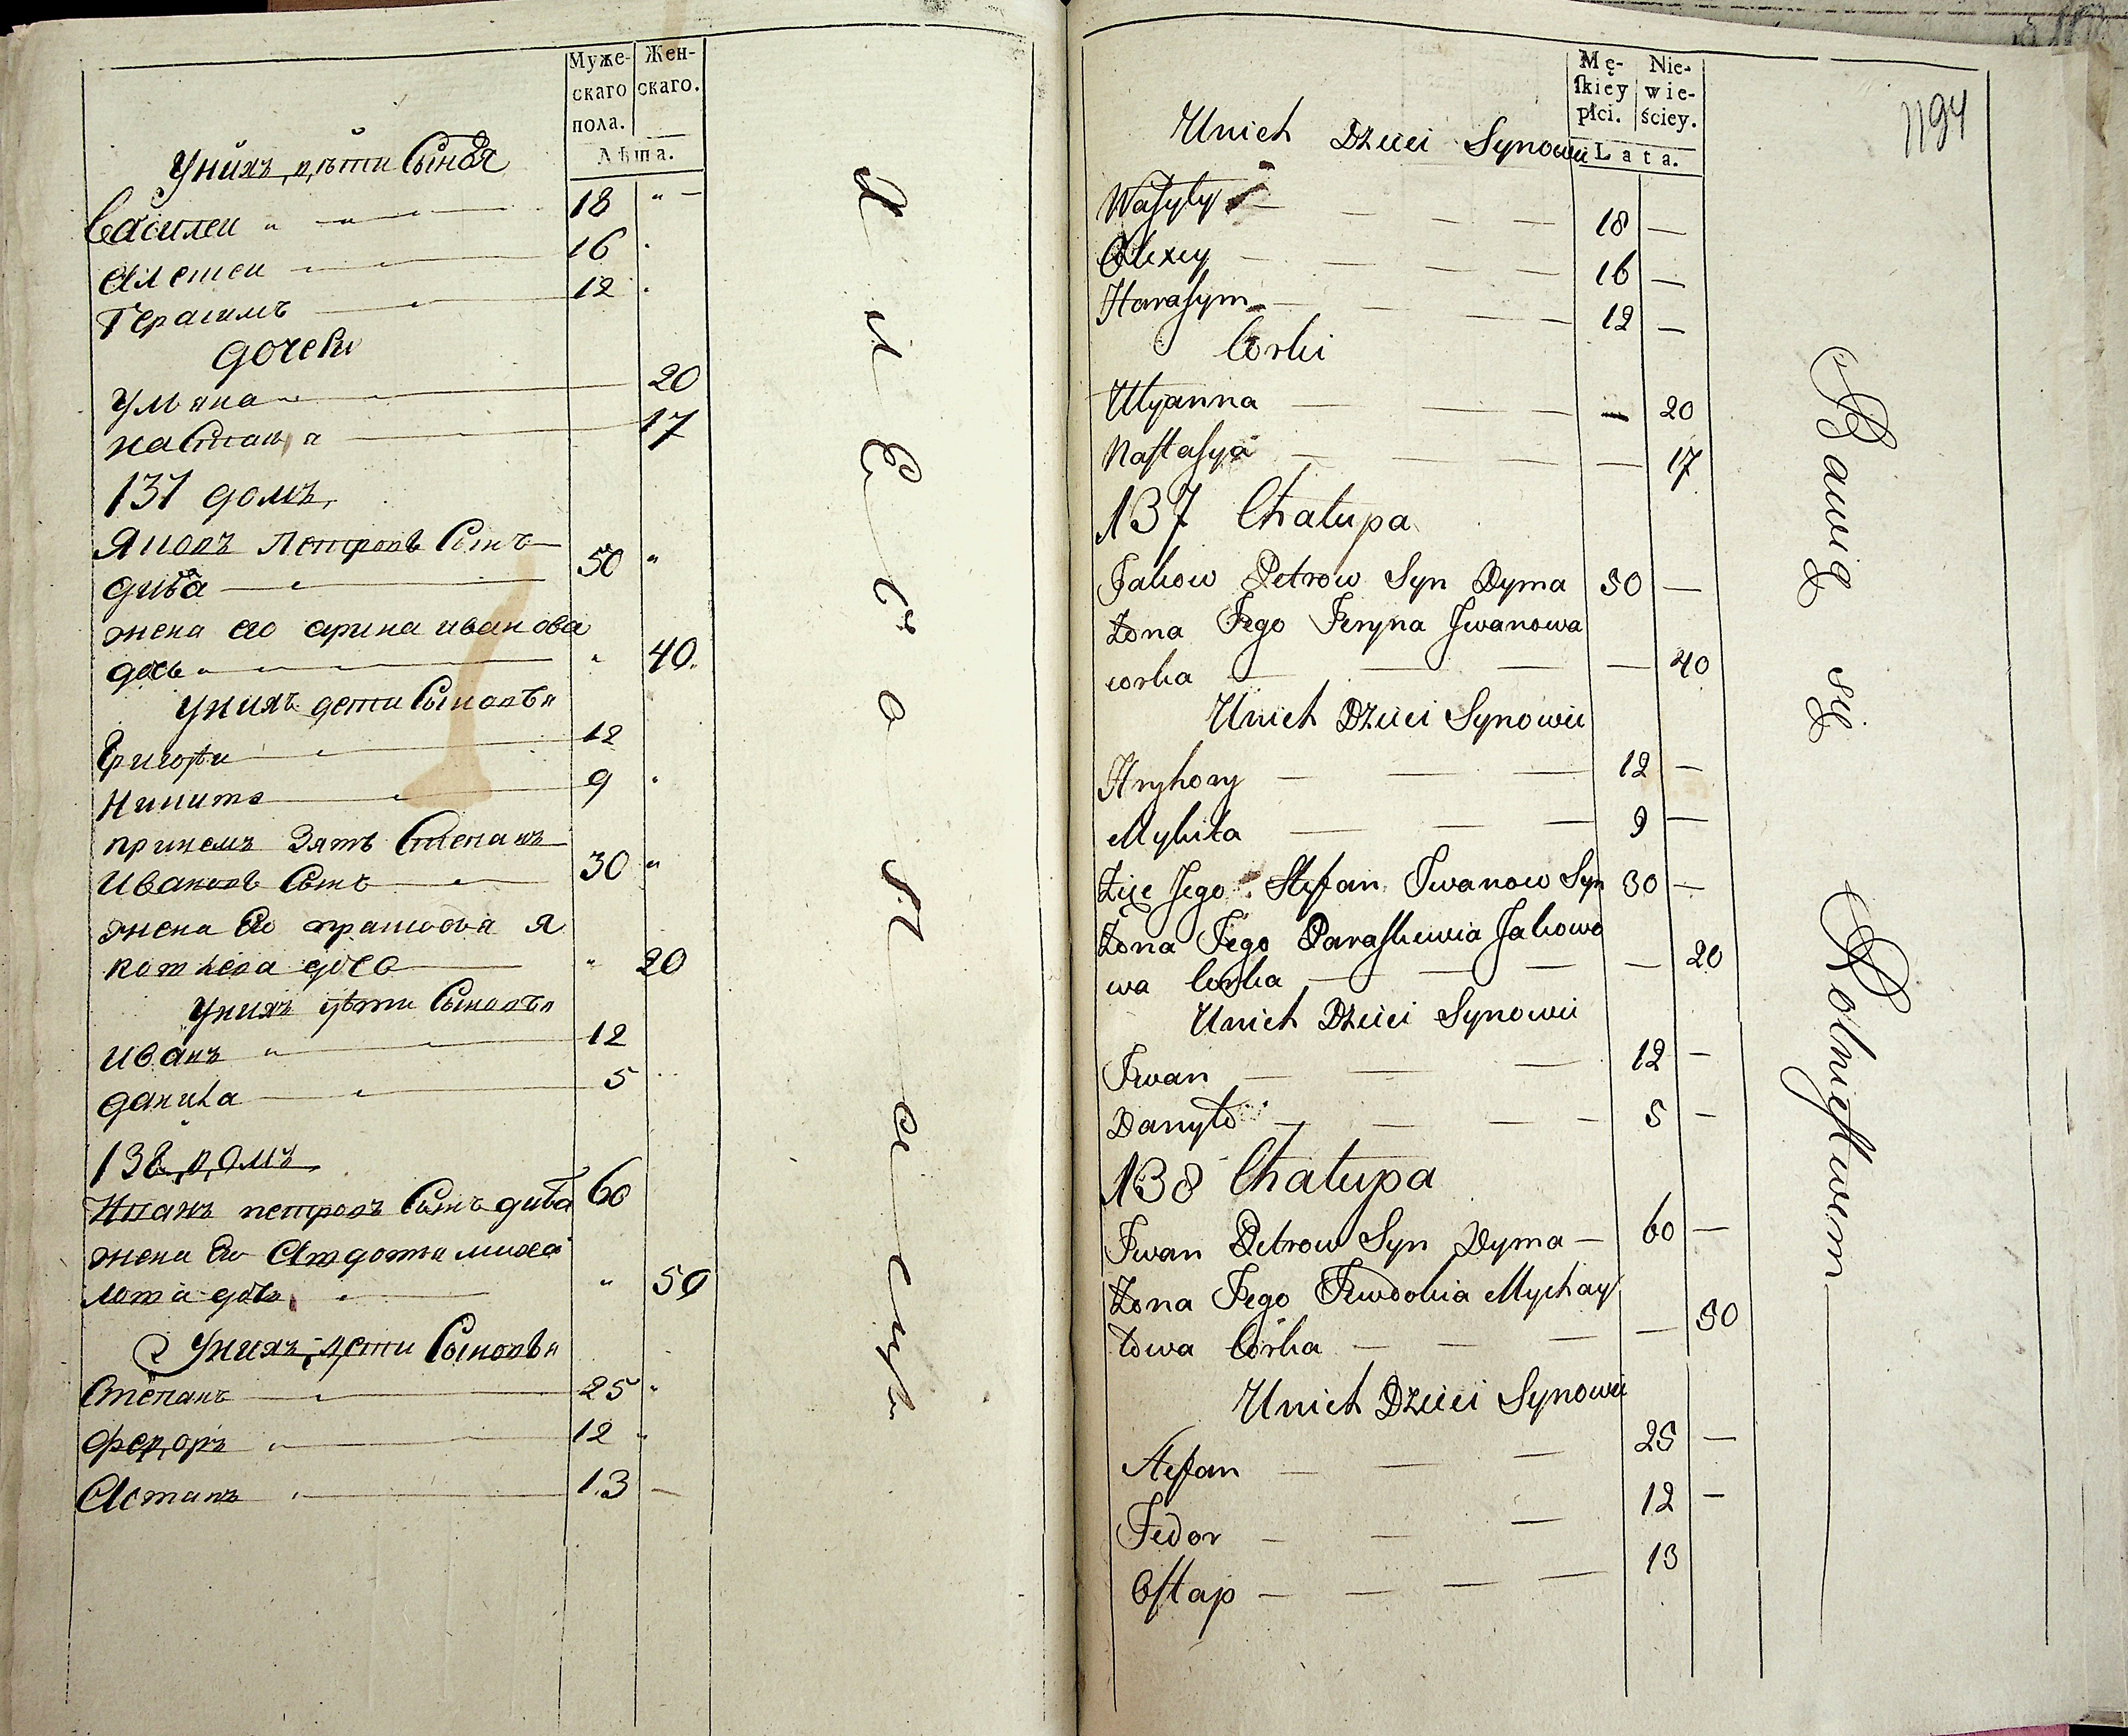 Муже-
скаго
пола.
Жен-
скаго.
Лѣта.
Унихъ дѣти Сыновя
Василеи 18
Алексеи 16
Герасимъ 12
дочеки
Уляна 20
настася 17
137 домъ
Яковъ Петровъ Сынъ
дыма 50
жена его арина иванова
дочь 40
Унихъ дети Сыновья
Григори 12
Никита 9
принемъ Зять Степанъ
Ивановъ Сынъ 30
жена Его прасковя я
ковлева дочь 20
Унихъ дѣти Сыновья
иванъ 12
данила 5
138 домъ
Иванъ петровъ Сынъ дыма 60
жена Ево Авдотя миха
лова дочь 50
Унихъ дети Сыновья
Степанъ 25
Федоръ 12
Астапъ 13
Mę-
skiey
płci.
Nie-
wie-
ściey.
Lata.
1194
Unich Dzieci Synowie
Wasyly 18
Olexey 16
Harasym 12
Córki
Ulyanna 20
Nastasya 17
137 Chałupa
Jakow Petrow Syn Dyma 50
Żona Jego Jeryna Iwanowa
corka 40
Unich Dzieci Synowie
Hryhory 12
Mykita 9
Zięć Jego Stefan Iwanow Syn 30
Żona Jego Paraskewia Jakowo
wa Corka 20
Unich Dzieci Synowie
Iwan 12
Danyło 5
138 Chałupa
Iwan Petrow Syn Dyma 60
Żona Jego Jewdokia Mychay
łowa Córka 50
Unich Dzieci Synowie
Stefan 25
Fedor 12
Ostap 13
Bawią się Rolnictwem